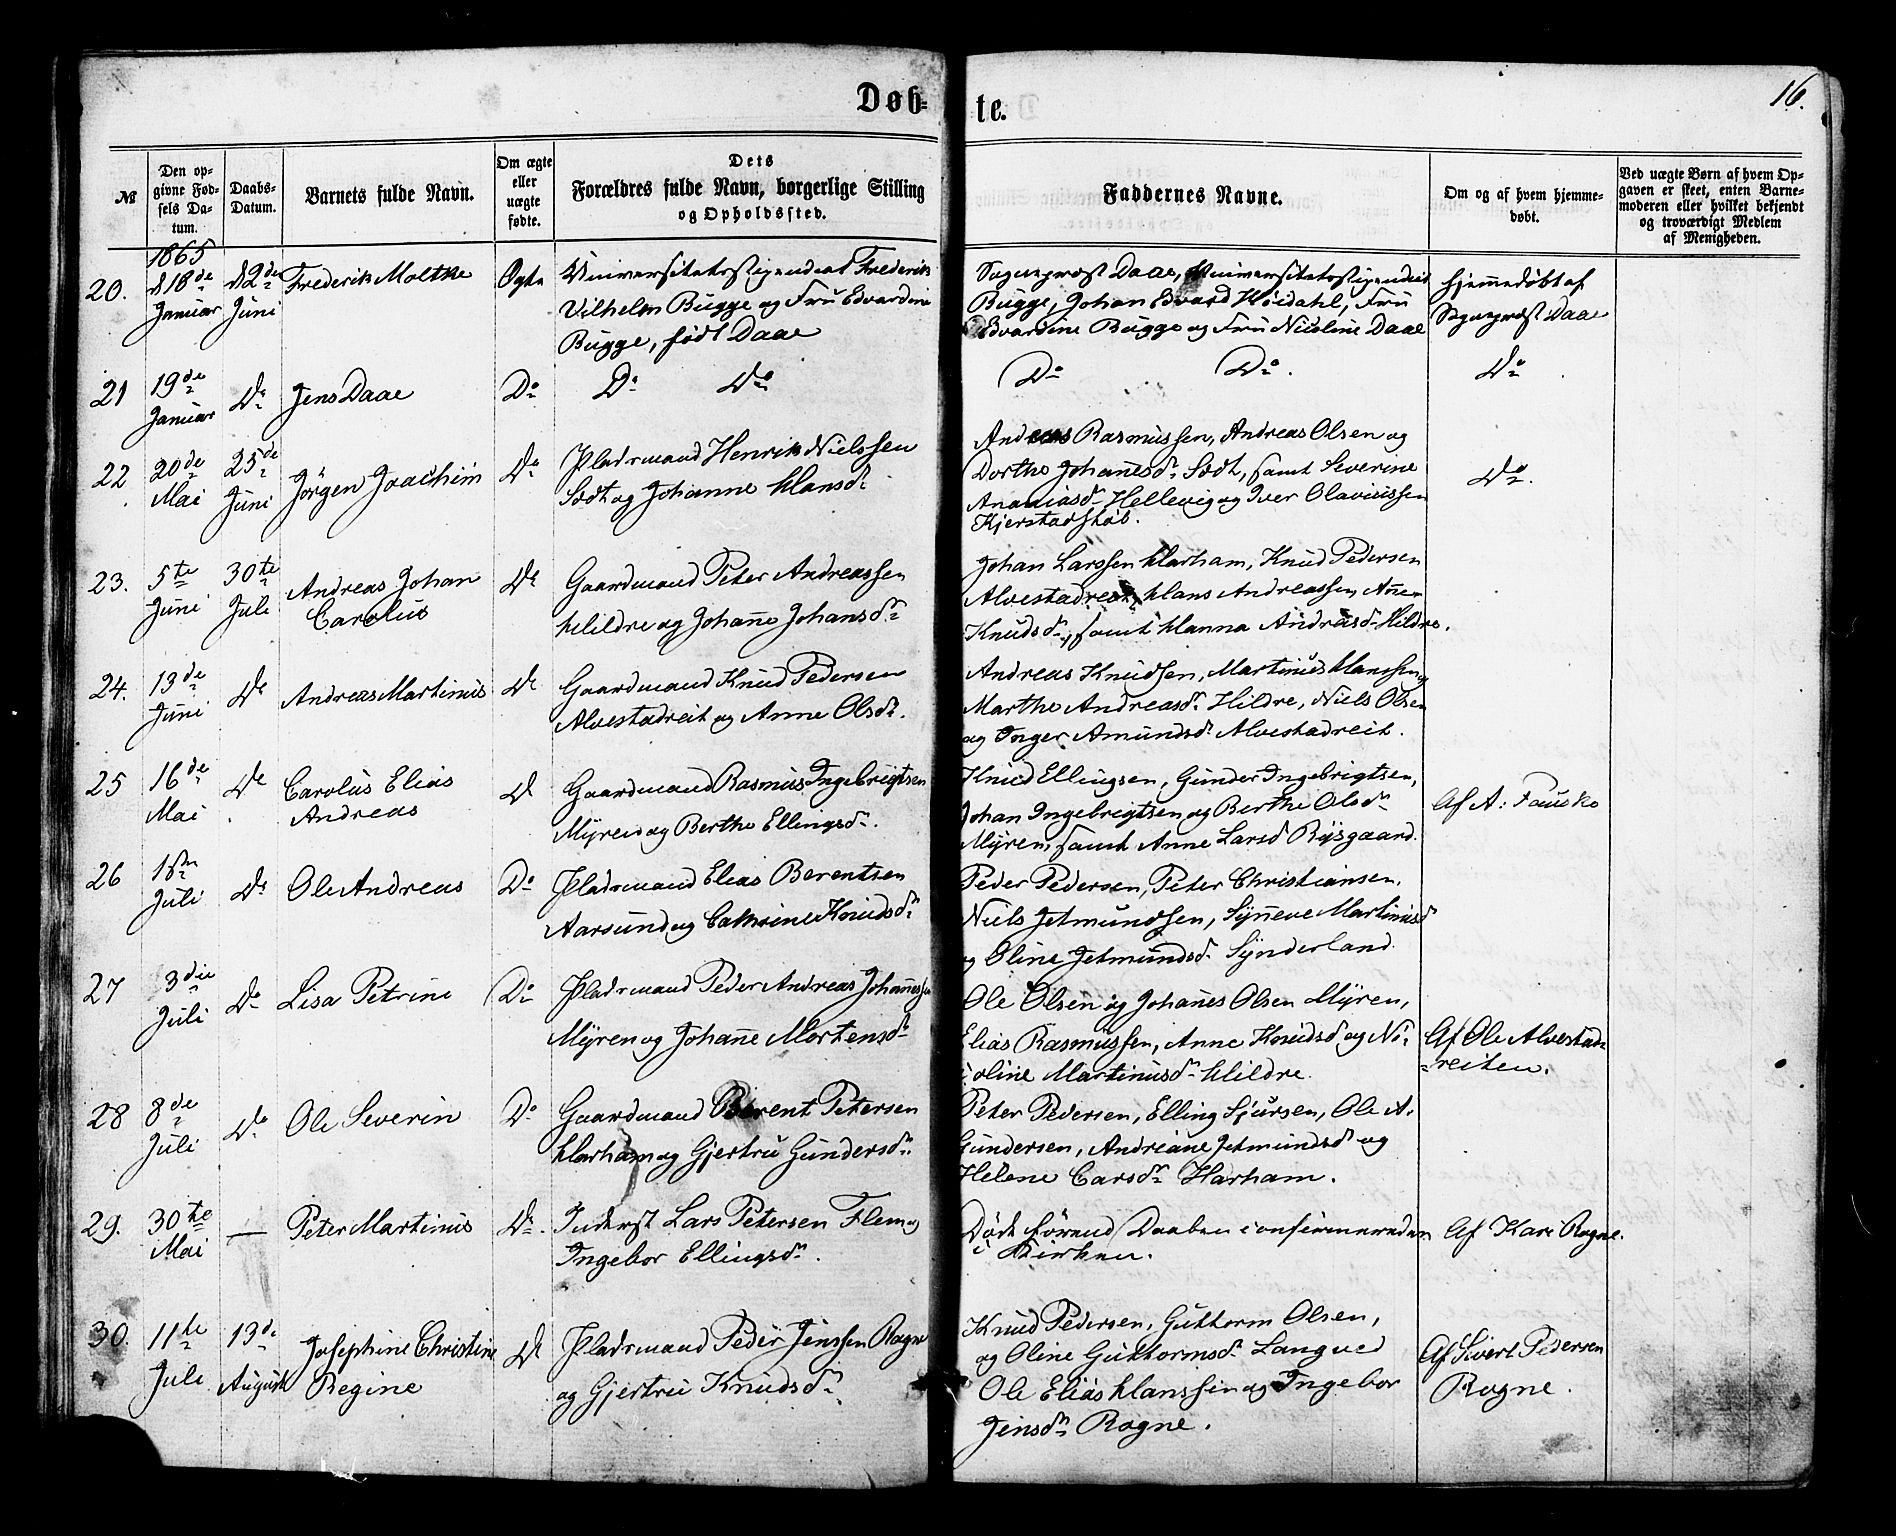 Døb-
te.
16.
№
Den op-
givne Fød-
sels Da-
tum.
Daabs-
Datum.
Barnets fulde Navn.
Om ægte
eller
uægte
fødte.
Dets
Forældres fulde Navn, borgerlige Stilling
og Opholdssted.
Faddernes Navne.
Om og af hvem hjemme-
døbt.
Ved uægte Børn af hvem Op-
gaven er skeet, enten Barne-
moderen eller hvilket bekjendt
og troværdigt Medlem
af Menigheden.
1865
20.
d 18de
Januar
d 2de
Juni
Frederik Moltke
Ægte
Universitetsstipendiat Frederik
Vilhelm Bugge og Fru Edvardine
Bugge, født Daae
Sognepræst Daae, Universitetsstipendiat
Bugge, Johan Edvard Høidahl, Fru
Edvardine Bugge og Fru Nicoline Daae
hjemmedøbt af
Sognepræst Daae
21
19de
Januar
Do
Jens Daae
Do
Do Do
Do Do.
Do
22
20de
Mai
25de
Juni
Jørgen Joachim
Do
Pladsmand Henrik Nielssen
Sødt og Johanne Hansd.
Andreas Rasmussen, Andreas Olsen og
Dorthe Johannesd. Sødt, samt Severine
Ananiasd. Hellevig og Iver Olavissen
Kjerstadskøb.
Do.
23.
5te
Juni
30te
Juli
Andreas Johan
Carolus
Do
Gaardmand Peter Andreassen
Hildre og Johane Johansd.
Johan Larssen Harham, Knud Pedersen
Alvestadreit, Hans Andreassen, Ane
Knudsd., samt Hanna Andreasd. Hildre.
24.
13de
Juni
Do
Andreas Martinus
Do
Gaardmand Knud Pedersen
Alvestadreit og Anne Olsd.
Andreas Knudsen, Martinus Hanssen,
Marthe Andreasd. Hildre, Niels Olsen
og Inger Amundsd. Alvestadreit.
25
16de
Mai
Do
Carolus Elias
Andreas
Do
Gaardmand Rasmus Ingebrigtsen
Myren og Berthe Ellingsd.
Knud Ellingsen, Gunder Ingebrigtsen,
Johan Ingebrigtsen og Berthe Olsd.
Myren, samt Anne Larsd Rysgaard.
Af A: Fauske
26
1ste
Juli
Do
Ole Andreas
Do
Pladsmand Elias Berentsen
Aarsund og Cathrine Knudsd.
Peder Pedersen, Peter Christiansen,
Niels Jetmundsen, Syneve Martinusd
og Oline Jetmundsd. Synderland.
27
3die
Juli
Do
Lisa Petrine
Do
Pladsmand Peder Andreas Johanssen
Myren og Johane Mortensd.
Ole Olsen og Johanes Olsen Myren,
Elias Rasmussen, Anne Knudsd og Ni-
coline Martinusd. Hildre.
Af Ole Alvestad-
reiten.
28
8de
Juli
Do
Ole Severin
Do
Gaardmand Berent Petersen
Harham og Gjertru Gundersd.
Peter Pedersen, Elling Sjursen, Ole A.
Gundersen, Andreane Jetmundsd og
Helene Larsd. Harham.
29.
30te
Mai
—
Peter Martinus
Do.
Inderst Lars Petersen Flem og
Ingebor Ellingsd.
Døde førend Daaben confirmeredes
i Kirken.
Af Kari Rogne.
30.
11te
Juli
13de
August
Josephine Christine
Regine
Do
Pladsmand Peder Jenssen Rogne
og Gjertru Knudsd.
Knud Pedersen, Guttorm Olsen,
og Oline Guttormsd. Langved
Ole Elias Hanssen og Ingebor
Jensd. Rogne.
Af Sivert Pedersen
Rogne.